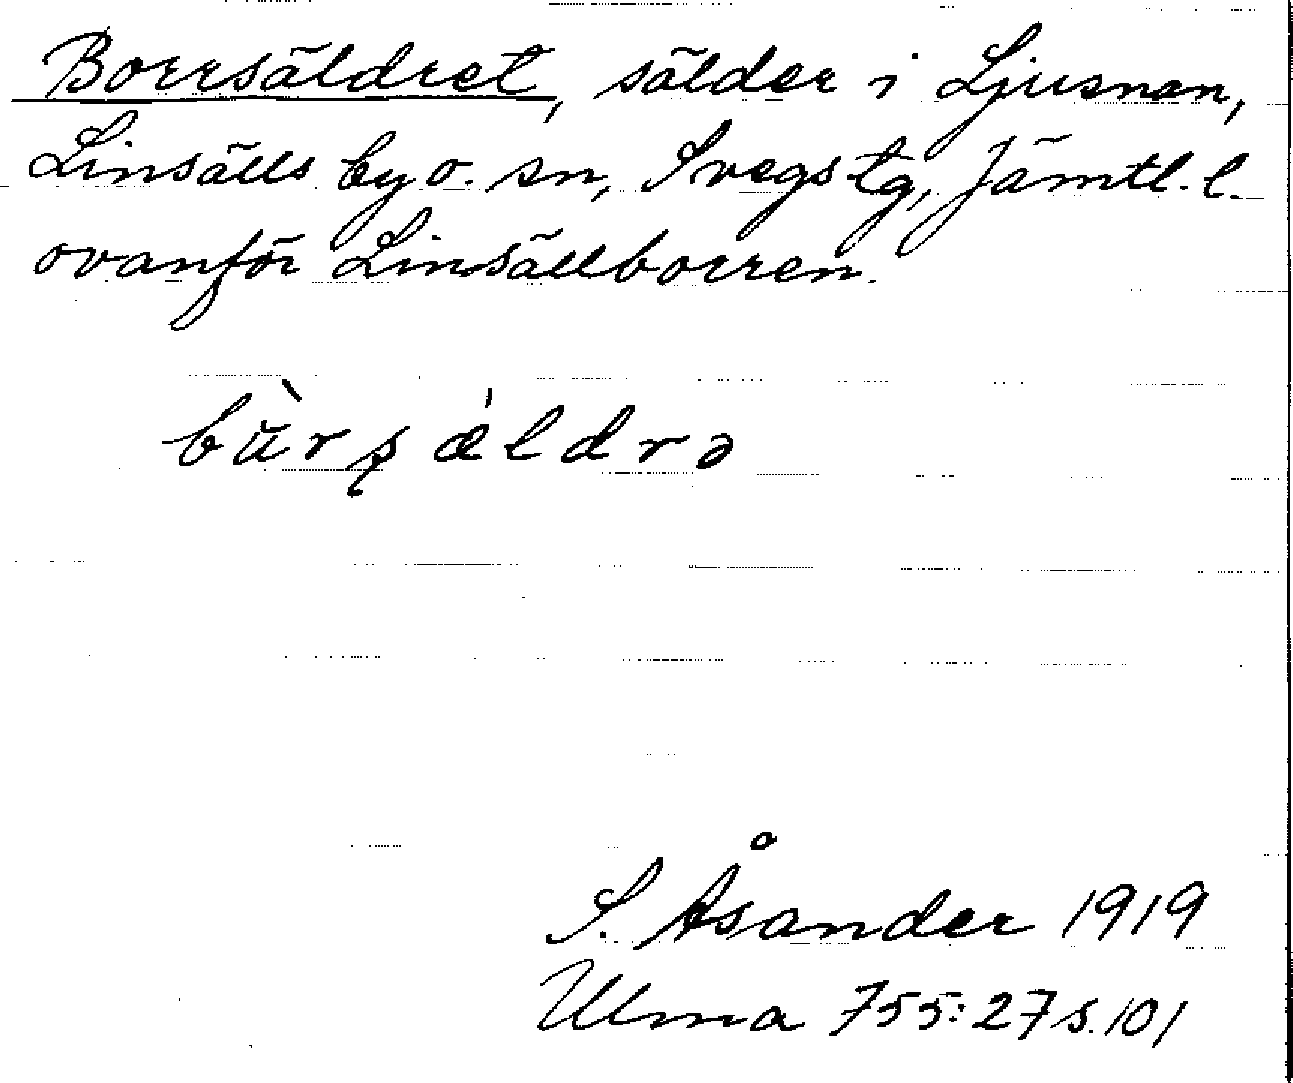 Borrsäldret, sälder i Ljusnan,
Linsälls by o. sn, Svegs tg, Jämtl. l.
ovanför Linsällborren.
bùrʂǽldrə
S. Åsander 1919
Ulma 755:27 s. 101